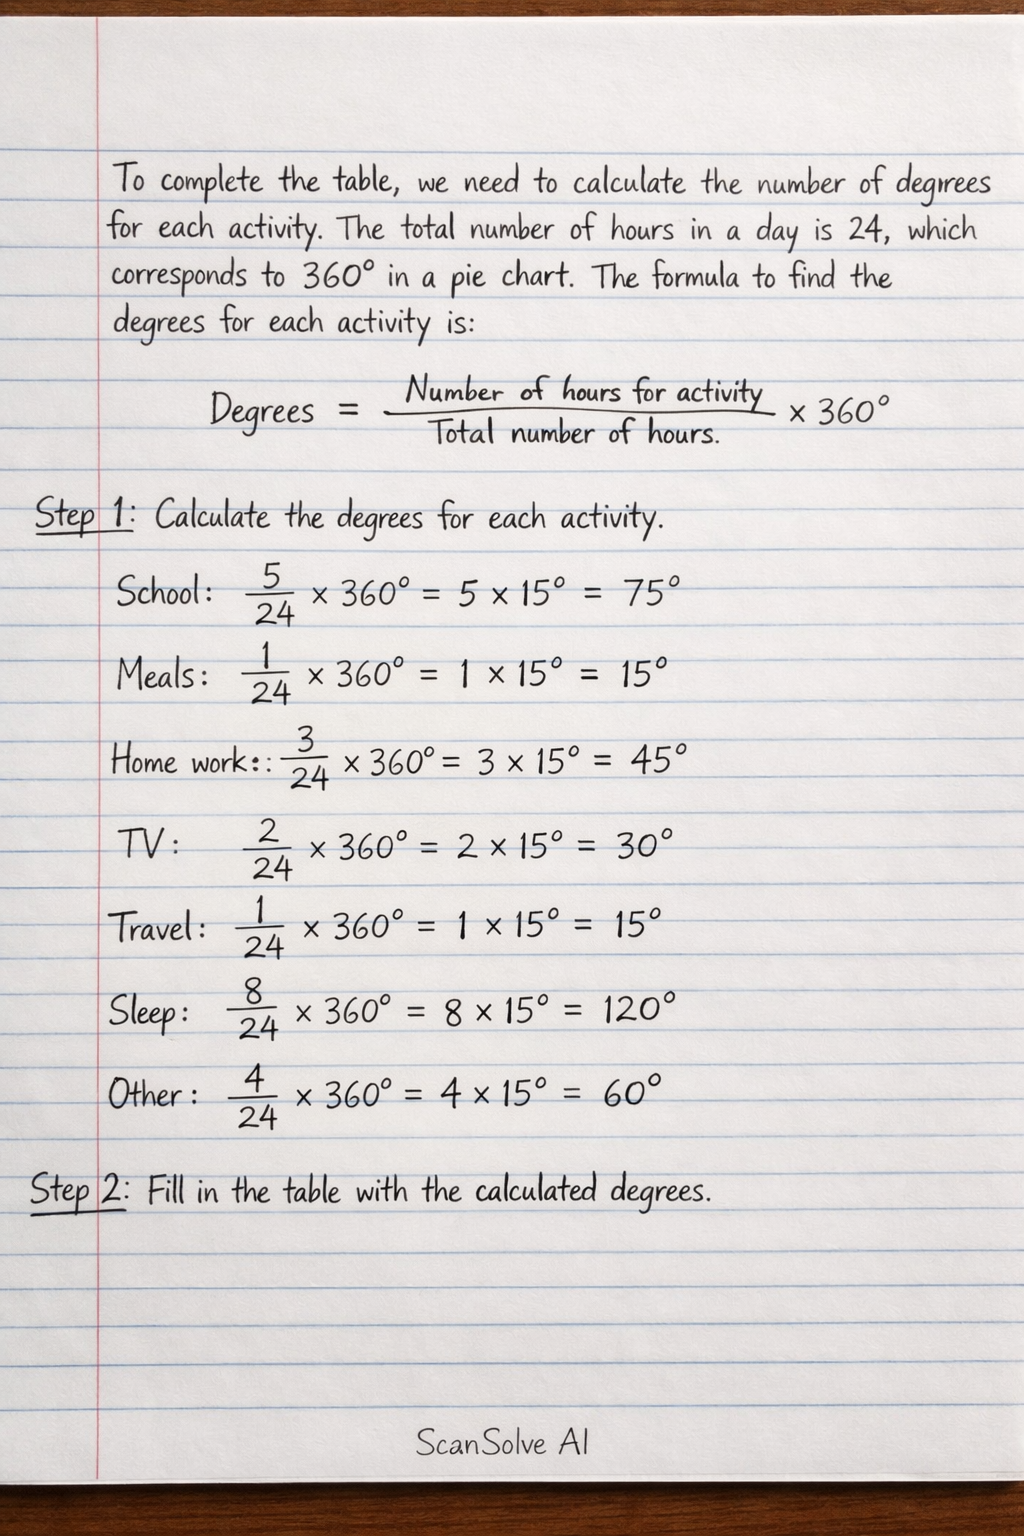 To complete the table, we need to calculate the number of degrees
for each activity. The total number of hours in a day is 24, which
corresponds to 360° in a pie chart. The formula to find the
degrees for each activity is:
Degrees = Number of hours for activity / Total number of hours. × 360°
Step 1: Calculate the degrees for each activity.
School: 5/24 × 360° = 5 × 15° = 75°
Meals: 1/24 × 360° = 1 × 15° = 15°
Home work:: 3/24 × 360° = 3 × 15° = 45°
TV: 2/24 × 360° = 2 × 15° = 30°
Travel: 1/24 × 360° = 1 × 15° = 15°
Sleep: 8/24 × 360° = 8 × 15° = 120°
Other: 4/24 × 360° = 4 × 15° = 60°
Step 2: Fill in the table with the calculated degrees.
ScanSolve AI